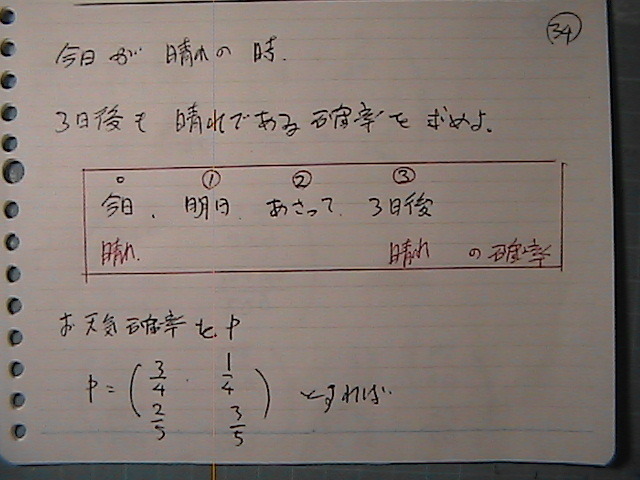 34
今日が 晴れの 時.
3日後も 晴れである 確率を 求めよ.
0 ① ② ③
今日. 明日. あさって. 3日後
晴れ. 晴れ の確率
お天気確率を P
P = ( 3/4 . 1/4
2/5 3/5 ) とすれば